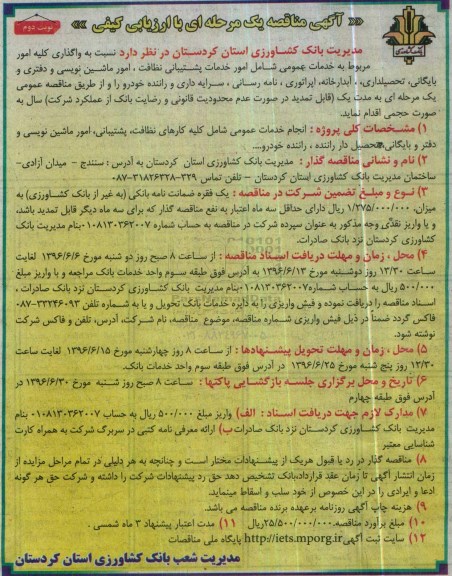 «« آگهی مناقصه یک مرحله ای با ارزیابی کیفی »»
نوبت دوم
مدیریت بانک کشاورزی استان کردستان در نظر دارد نسبت به واگذاری کلیه امور
مربوط به خدمات عمومی شامل امور خدمات پشتیبانی نظافت ، امور ماشین نویسی و دفتری و
بایگانی، تحصیلداری ، آبدارخانه، اپراتوری ، نامه رسانی ، سرایه داری و راننده خودرو را و از طریق مناقصه عمومی
یک مرحله ای به مدت یک (قابل تمدید در صورت عدم محدودیت قانونی و رضایت بانک از عملکرد شرکت) سال به
صورت حجمی اقدام نماید.
۱) مشخصات کلی پروژه : انجام خدمات عمومی شامل کلیه کارهای نظافت، پشتیبانی، امور ماشین نویسی و
دفتر و بایگانی، تحصیل دار راننده ، راننده خودرو....
۲) نام و نشانی مناقصه گذار : مدیریت بانک کشاورزی استان کردستان به آدرس : سنندج - میدان آزادی-
ساختمان مدیریت بانک کشاورزی استان کردستان – تلفن تماس ۳۳۹-۳۱۸۲۶۳۲۸-۰۸۷
۳) نوع و مبلغ تضمین شرکت در مناقصه : یک فقره ضمانت نامه بانکی (به غیر از بانک کشاورزی) به
میزان، ۱/۲۷۵/۰۰۰/۰۰۰ ریال دارای حداقل سه ماه اعتبار به نفع مناقصه گذار که برای سه ماه دیگر قابل تمدید باشد،
و یا واریز نقدی وجه مذکور به عنوان سپرده شرکت در مناقصه به حساب شماره ۰۱۰۸۱۳۰۳۶۲۰۰۷ بنام مدیریت بانک
کشاورزی کردستان نزد بانک صادرات.
۴) محل ، زمان و مهلت دریافت اسناد مناقصه : از ساعت ۸ صبح روز دو شنبه مورخ ۱۳۹۶/۶/۶ لغایت
ساعت ۱۳/۳۰ روز دوشنبه مورخ ۱۳۹۶/۶/۱۳ به آدرس فوق طبقه سوم واحد خدمات بانک مراجعه و با واریز مبلغ
۵۰۰/۰۰۰ ریال به حساب شماره ۰۱۰۸۱۳۰۳۶۲۰۰۷ بنام مدیریت بانک کشاورزی کردستان نزد بانک صادرات ،
اسناد مناقصه را دریافت نموده و فیش واریزی را به دایره خدمات بانک تحویل و یا به شماره تلفن ۳۳۲۴۶۰۹۳-۰۸۷
فاکس گردد ضمنا در ذیل فیش واریزی شماره مناقصه، موضوع مناقصه، نام شرکت، آدرس، تلفن و فاکس شرکت
نوشته شود.
۵) محل ، زمان و مهلت تحویل پیشنهادها : از ساعت ۸ روز چهارشنبه مورخ ۱۳۹۶/۶/۱۵ لغایت ساعت
۱۲/۳۰ روز پنج شنبه مورخ ۱۳۹۶/۶/۲۵ در آدرس فوق طبقه سوم واحد خدمات بانک.
۶) تاریخ و محل برگزاری جلسه بازگشایی پاکتها : ساعت ۸ صبح روز شنبه مورخ ۱۳۹۶/۶/۳۰ در
آدرس فوق طبقه چهارم
۷) مدارک لازم جهت دریافت اسناد : الف) واریز مبلغ ۵۰۰/۰۰۰ ریال به حساب ۰۱۰۸۱۳۰۳۶۲۰۰۷ بنام
مدیریت بانک کشاورزی کردستان نزد بانک صادرات ب) ارائه معرفی نامه کتبی در سربرگ شرکت به همراه کارت
شناسایی معتبر
۸) مناقصه گذار در رد یا قبول هریک از پیشنهادات مختار است و چنانچه به هر دلیلی در تمام مراحل مزایده از
زمان انتشار آگهی تا زمان عقد قرارداد،بانک تشخیص دهد حق رد پیشنهادات شرکت را داشته و شرکت حق هر گونه
ادعا و ایرادی را در این خصوص از خود سلب و اسقاط مینماید.
۹) هزینه چاپ آگهی روزنامه برعهده برنده مناقصه می باشد.
۱۰) مبلغ برآورد مناقصه ۲۵/۵۰۰/۰۰۰/۰۰۰ریال ۱۱) مدت اعتبار پیشنهاد ۳ ماه شمسی .
۱۲) سایت ثبت آگهی http://iets.mporg.ir پایگاه ملی مناقصات
مدیریت شعب بانک کشاورزی استان کردستان